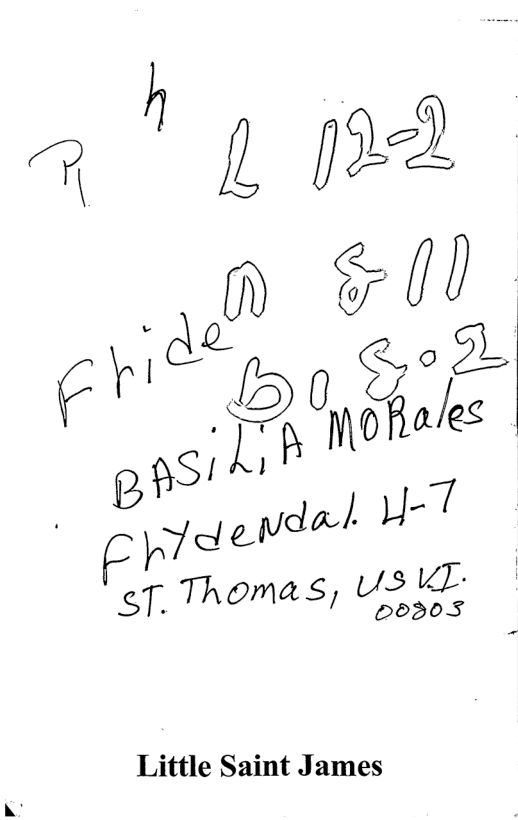 h
P L 12-2
n 8 11
Fhide
b 0 8.2
BASiLiA MORales
FhYdeNdal. H-7
ST. Thomas, US V.I.
00803
Little Saint James